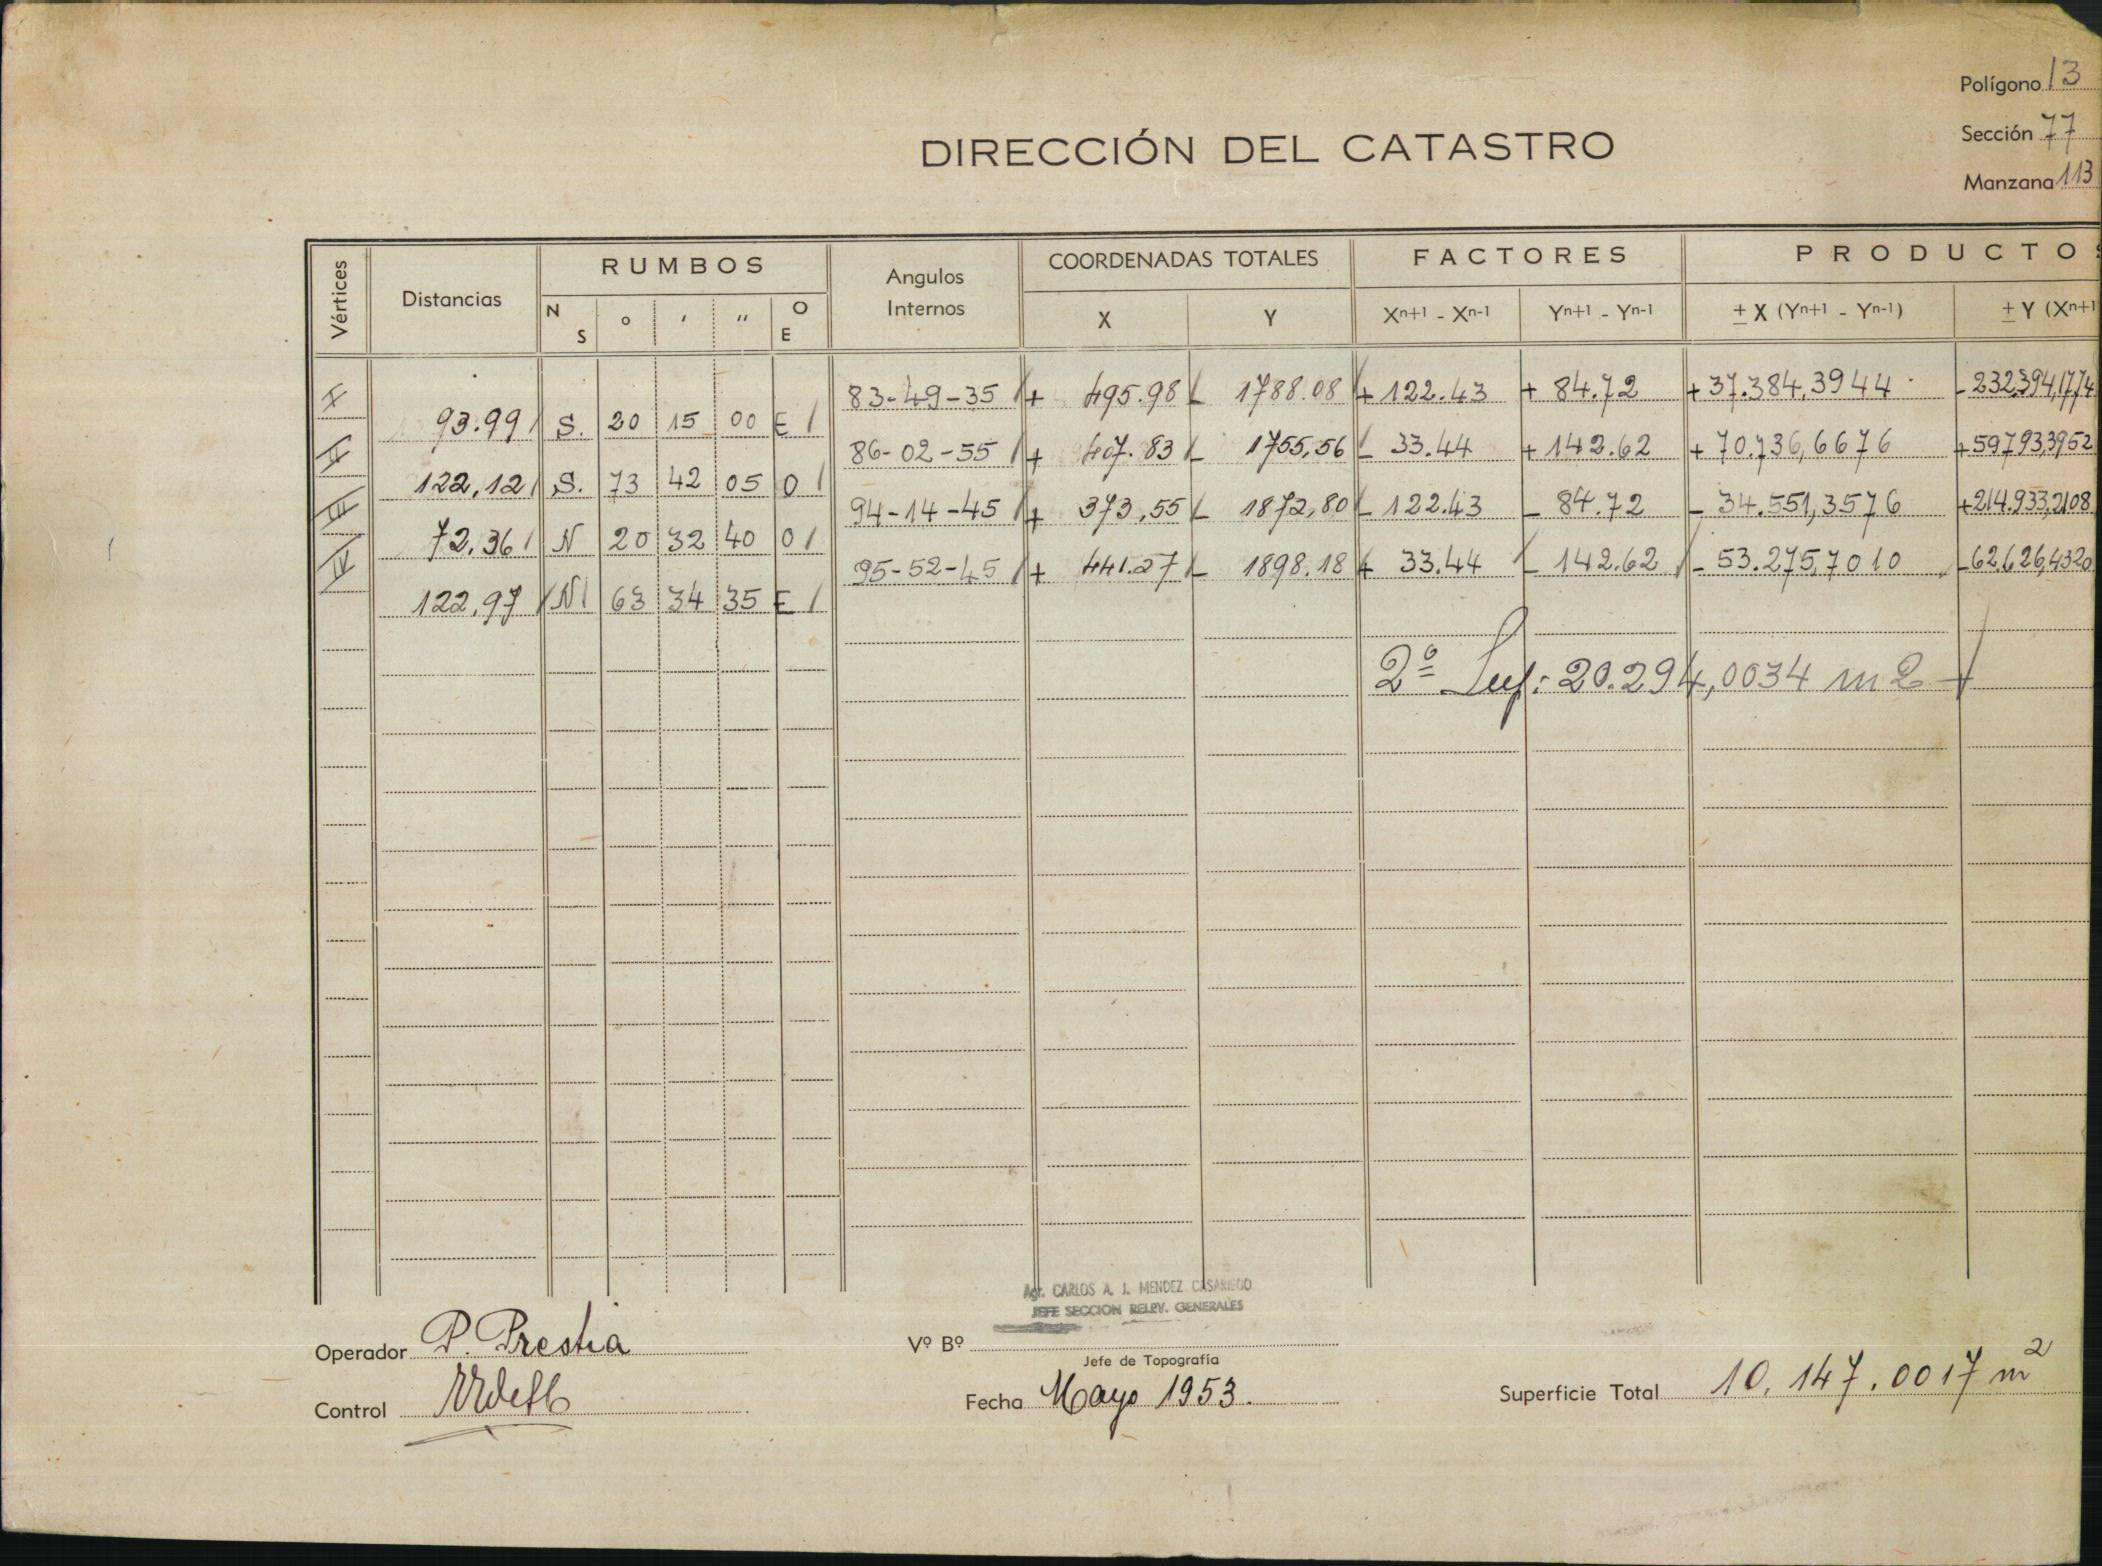 Polígono 13
Sección 77
Manzana 113
DIRECCIÓN DEL CATASTRO
Vértices Distancias RUMBOS Angulos Internos COORDENADAS TOTALES FACTORES PRODUCTOS
N S ° ' " O E X Y Xn+1 - Xn-1 Yn+1 - Yn-1 ± X (Yn+1 - Yn-1) ± Y (Xn+1
I 83-49-35 + 495.98 - 1788.08 + 122.43 + 84.72 + 37.384,3944 - 232.394,1774
93.99 S. 20 15 00 E
II 86-02-55 + 407.83 - 1755,56 - 33.44 + 142.62 + 70.736,6676 + 59.793,3952
122,12 S. 73 42 05 O
III 94-14-45 + 373,55 - 1872,80 - 122.43 - 84.72 - 34.551,3576 + 214.933,2108
72.36 N 20 32 40 O
IV 95-52-45 + 441.27 - 1898.18 + 33.44 - 142.62 - 53.275,7010 - 62.626,4320
122,97 N 63 34 35 E
2ª Sup: 20.294,0034 m2
Agr. CARLOS A. J. MENDEZ CASARIEGO
JEFE SECCION RELEV. GENERALES
Operador P. Prestia
Vº Bº
Jefe de Topografía
Control
Fecha Mayo 1953.
Superficie Total 10.147.0017 m2